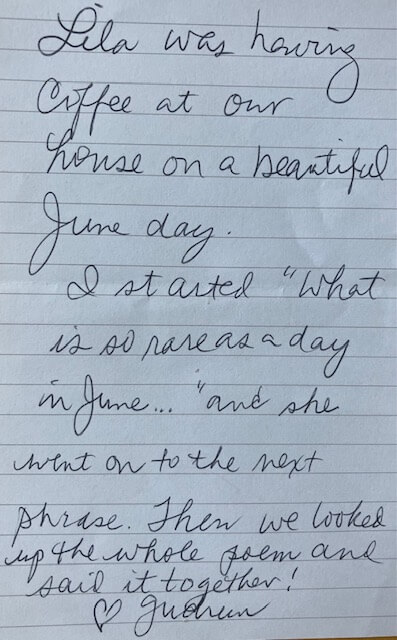 Lila was having
Coffee at our
house on a beautiful
June day.
I started "What
is so rare as a day
in June... "and she
went on to the next
phrase. Then we looked
up the whole poem and
said it together!
♡ Gudrun